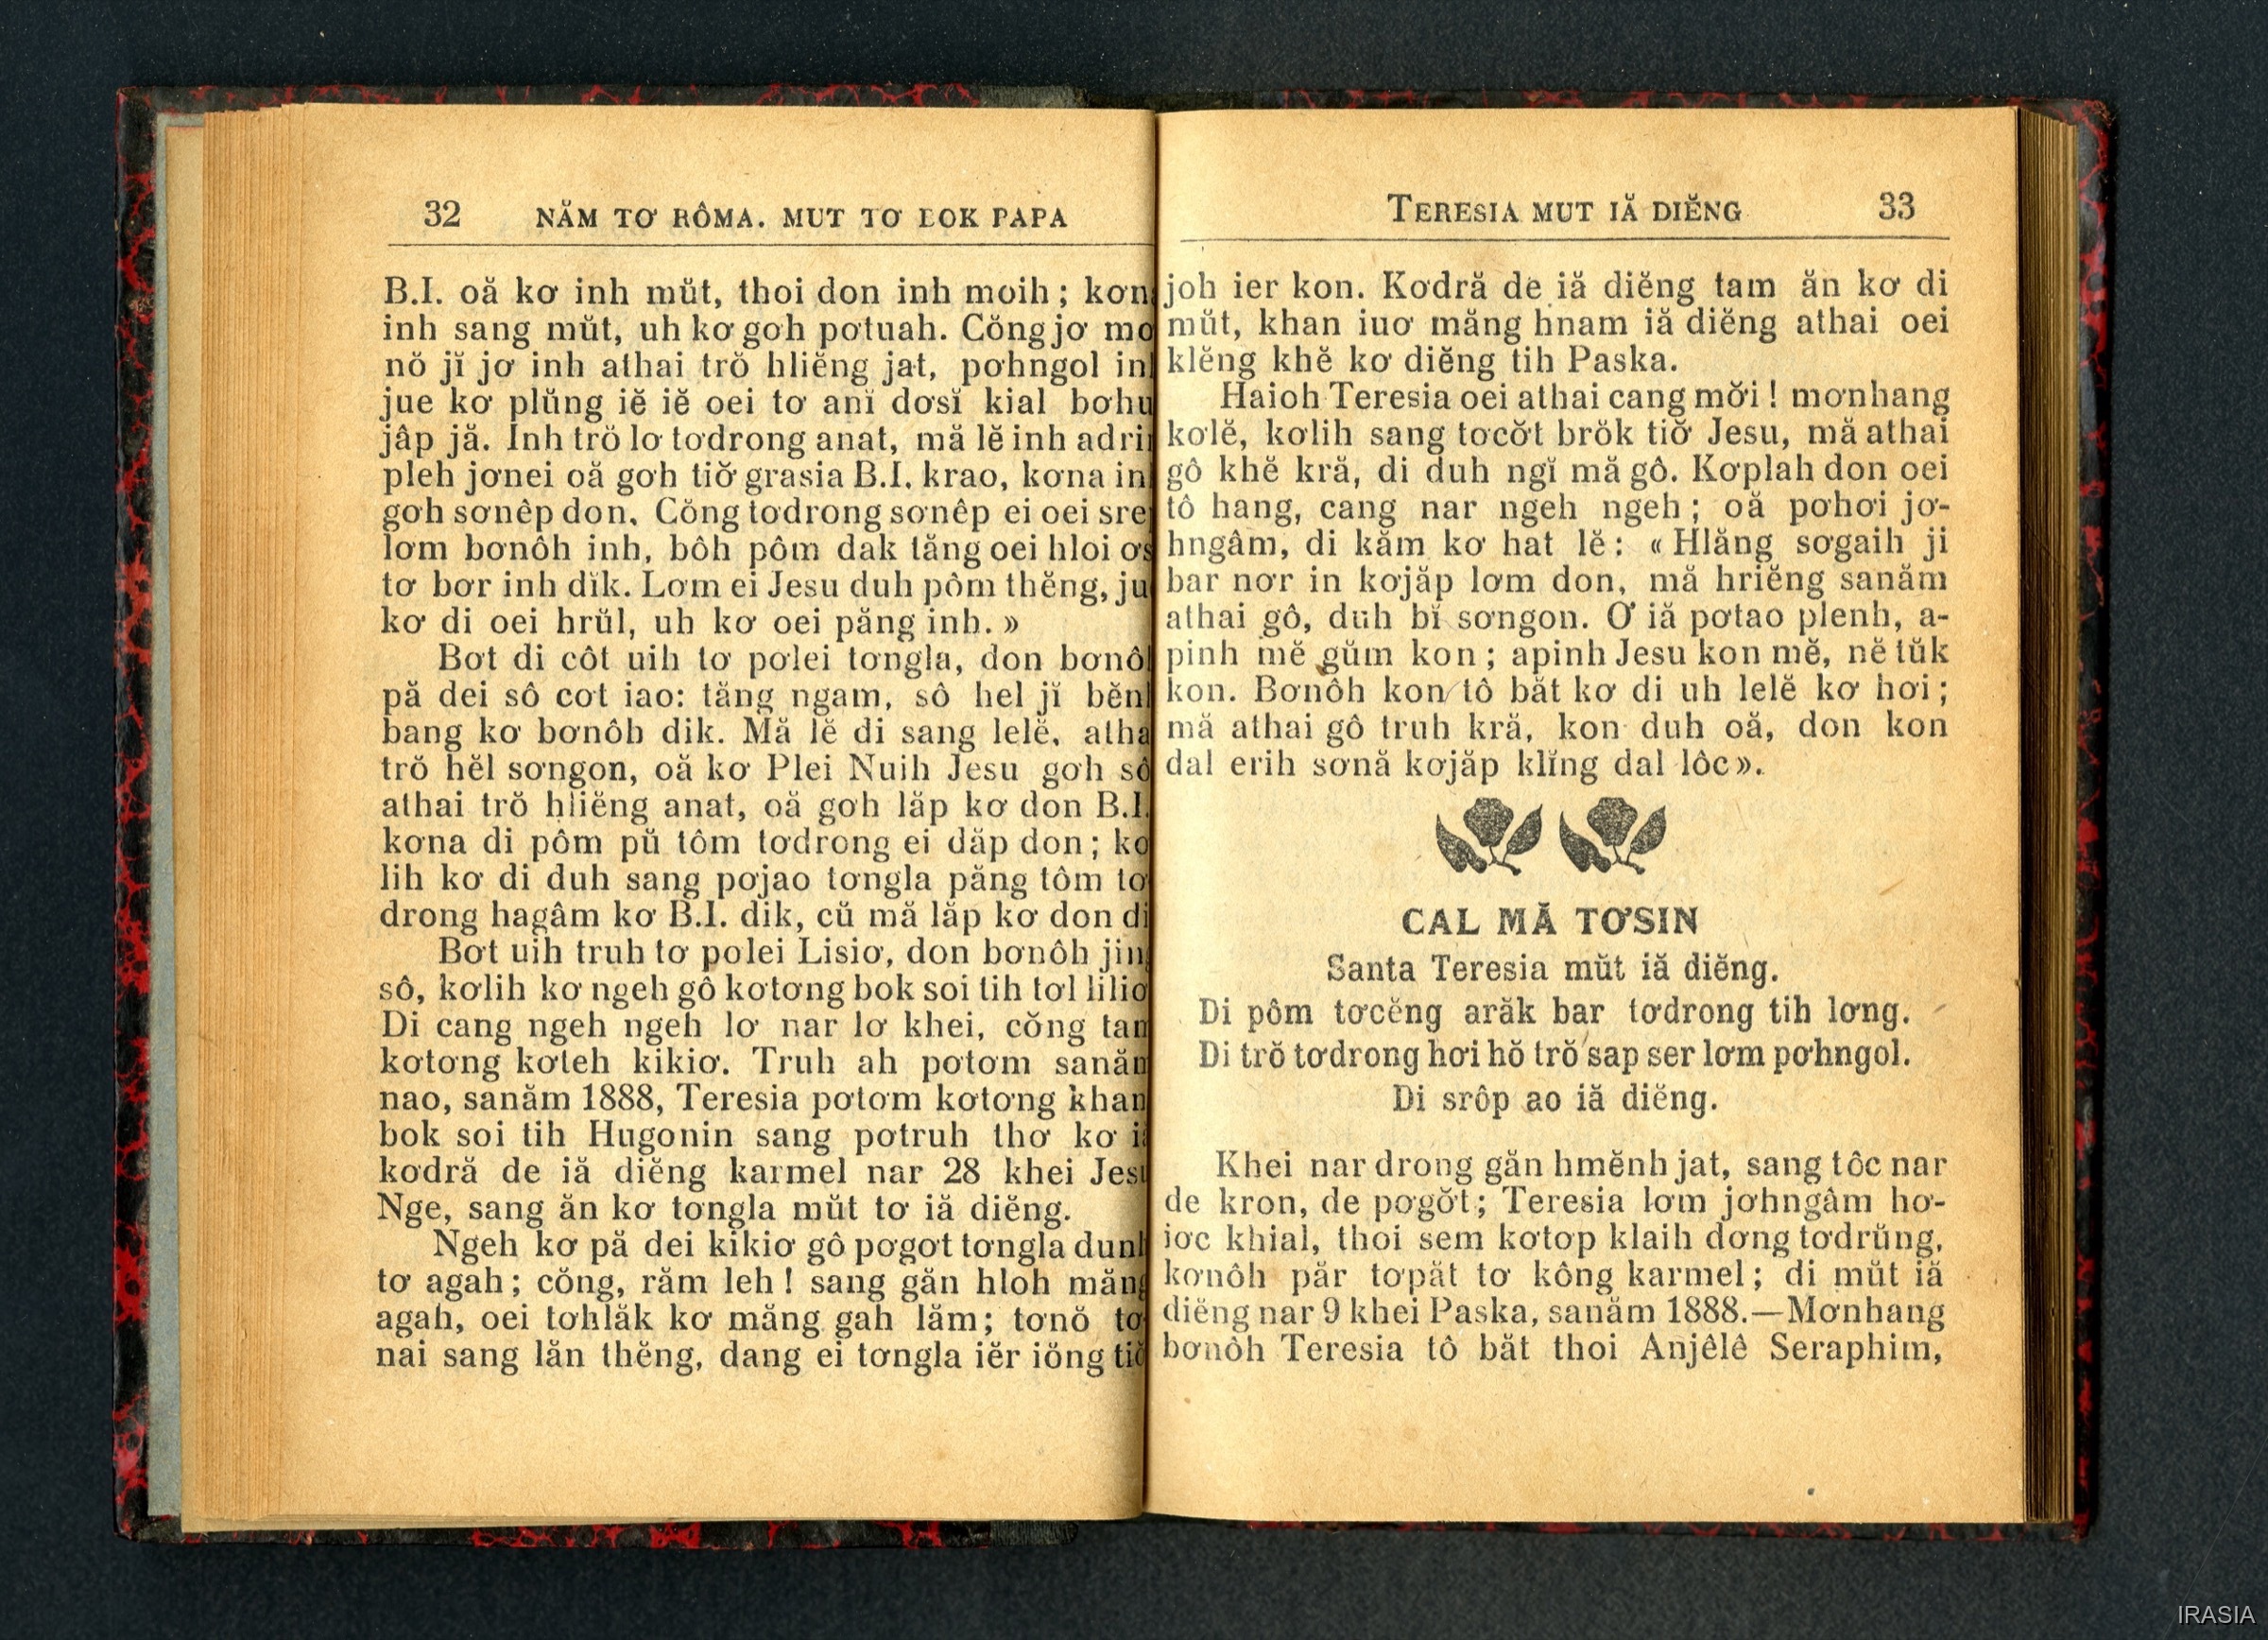 32 NĂM TƠ RÔMA. MUT TƠ BOK PAPA
B.I. oă kơ inh mŭt, thoi don inh moih ; kơn
inh sang mŭt, uh kơ goh pơtuah. Cŏng jơ mo
nŏ jĭ jơ inh athai trŏ hliĕng jat, pơhngol
jue kơ plŭng iĕ iĕ oei tơ anĭ dơsĭ kial bơhu
jâp jă. Inh trŏ lơ tơdrong anat, mă lĕ inh
pleh jơnei oă gơh tiơ̆ grasia B.I. krao, kơna
gơh sơnêp don. Cŏng tơdrong sơnêp ei oei
lơm bơnôh inh, bôh pôm dak tăng oei hloi
tơ bơr inh dĭk. Lơm ei Jesu duh pôm thĕng, ju
kơ di oei hrŭl, uh kơ oei păng inh. »
Bơt di côt uih tơ pơlei tơngla, don bơnôh
pă dei sô cơt iao: tăng ngam, sô hel jĭ
bang kơ bơnôh dik. Mă lĕ di sang lelĕ, atha
trŏ hĕl sơngon, oă kơ Plei Nuih Jesu gơh sô
athai trŏ hliĕng anat, oă gơh lăp kơ don B.I.
kơna di pôm pŭ tôm tơdrong ei dăp don ; kơ
lih kơ di duh sang pơjao tơngla păng tôm tơ
drong hagâm kơ B.I. dik, cŭ mă lăp kơ don di
Bơt uih truh tơ polei Lisiơ, don bơnôh
sô, kơlih kơ ngeh gô kơtơng bok soi tih tơl liliơ
Di cang ngeh ngeh lơ nar lơ khei, cŏng
kơtơng kơteh kikiơ. Truh ah pơtơm sanăm
nao, sanăm 1888, Teresia pơtơm kơtơng khan
bok soi tih Hugonin sang pơtruh thơ kơ
kơdră de iă diĕng karmel nar 28 khei Jesu
Nge, sang ăn kơ tơngla mŭt tơ iă diĕng.
Ngeh kơ pă dei kikiơ gô pơgơt tơngla dunh
tơ agah ; cŏng, răm leh ! sang găn hloh măng
agah, oei tơhlăk kơ măng gah lăm ; tơnŏ tơ
nai sang lăn thĕng, dang ei tơngla iĕr iŏng tiơ̆
TERESIA MUT IĂ DIĔNG 33
joh ier kon. Kơdră de iă diĕng tam ăn kơ di
mŭt, khan iuơ măng hnam iă diĕng athai oei
klĕng khĕ kơ diĕng tih Paska.
Haioh Teresia oei athai cang mơ̆i ! mơnhang
kơlĕ, kơlih sang tơcơ̆t brŏk tiơ̆ Jesu, mă athai
gô khĕ kră, di duh ngĭ mă gô. Kơplah don oei
tô hang, cang nar ngeh ngeh ; oă pơhơi jơ-
hngâm, di kăm kơ hat lĕ : « Hlăng sơgaih ji
bar nơr in kơjăp lơm don, mă hriĕng sanăm
athai gô, duh bĭ sơngon. Ơ iă pơtao plenh, a-
pinh mĕ gŭm kon ; apinh Jesu kon mĕ, nĕ tŭk
kon. Bơnôh kon tô băt kơ di uh lelĕ kơ hơi ;
mă athai gô truh kră, kon duh oă, don kon
dal erih sơnă kơjăp klĭng dal lôc ».
CAL MĂ TƠSIN
Santa Teresia mŭt iă diĕng.
Di pôm tơcĕng arăk bar tơdrong tih lơng.
Di trŏ tơdrong hơi hŏ trŏ sap ser lơm pơhngol.
Di srôp ao iă diĕng.
Khei nar drong găn hmĕnh jat, sang tôc nar
de kron, de pơgơ̆t ; Teresia lơm jơhngâm hơ-
iơc khial, thoi sem kơtơp klaih dơng tơdrŭng,
kơnôh păr tơpăt tơ kông karmel ; di mŭt iă
diĕng nar 9 khei Paska, sanăm 1888.—Mơnhang
bơnôh Teresia tô băt thoi Anjêlê Seraphim,
IRASIA